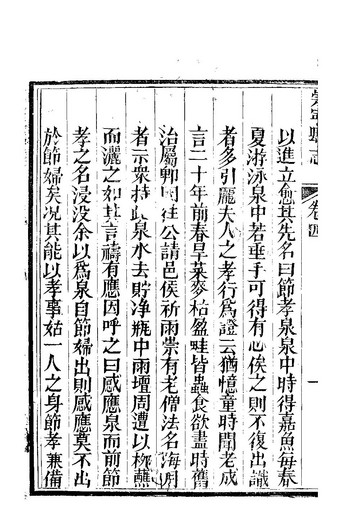 崇寧縣志 卷四 一
以進立愈其先名曰節孝泉泉中時得嘉魚每春
夏游泳泉中若垂手可得有心俟之則不復出識
者多引龐夫人之孝行為證云猶憶童時聞老成
言二十年前春旱菜麥枯盤蛙皆蟲食欲盡時舊
治屬郫因往公請邑侯祈雨崇有老僧法名海明
者示眾持此泉水去貯淨瓶中雨壇周遭以柳蘸
而灑之如其言禱有應因呼之曰感應泉而前節
孝之名浸沒余以為泉自節婦出則感應莫不出
於節婦矣况其能以孝事姑一人之身節孝兼備